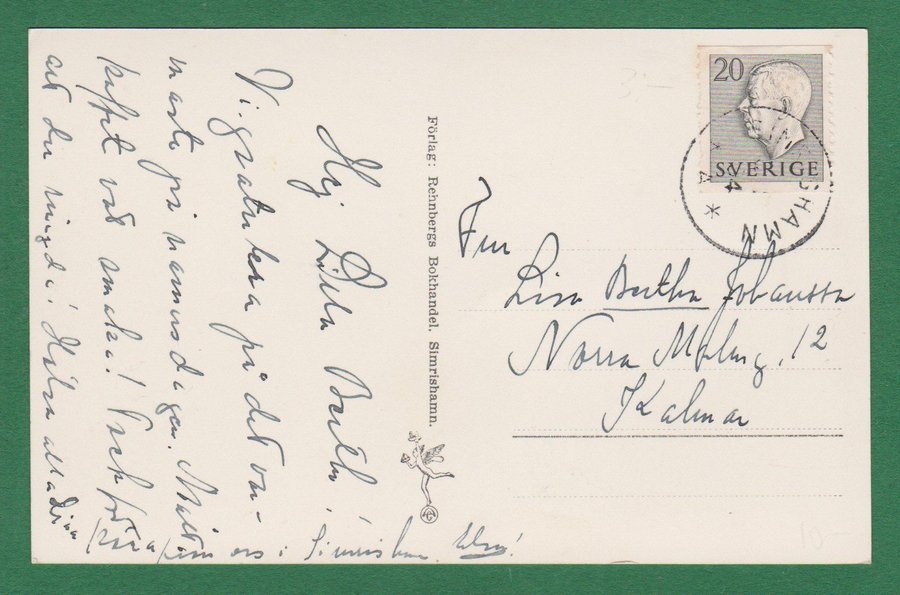 Hej Lilla Bertha!
Vi gratulera på det var-
maste på namnsdagen.
köpt vad smaka! Tack för
att du ringde! Hälsa alla Dina
kära från oss i Simrishamn. Elna!
Förlag: Rehnbergs Bokhandel, Simrishamn.
20
SVERIGE
HAMN
4
Fru
Lisa Bertha Johansson
Norra Malmg. 12
Kalmar